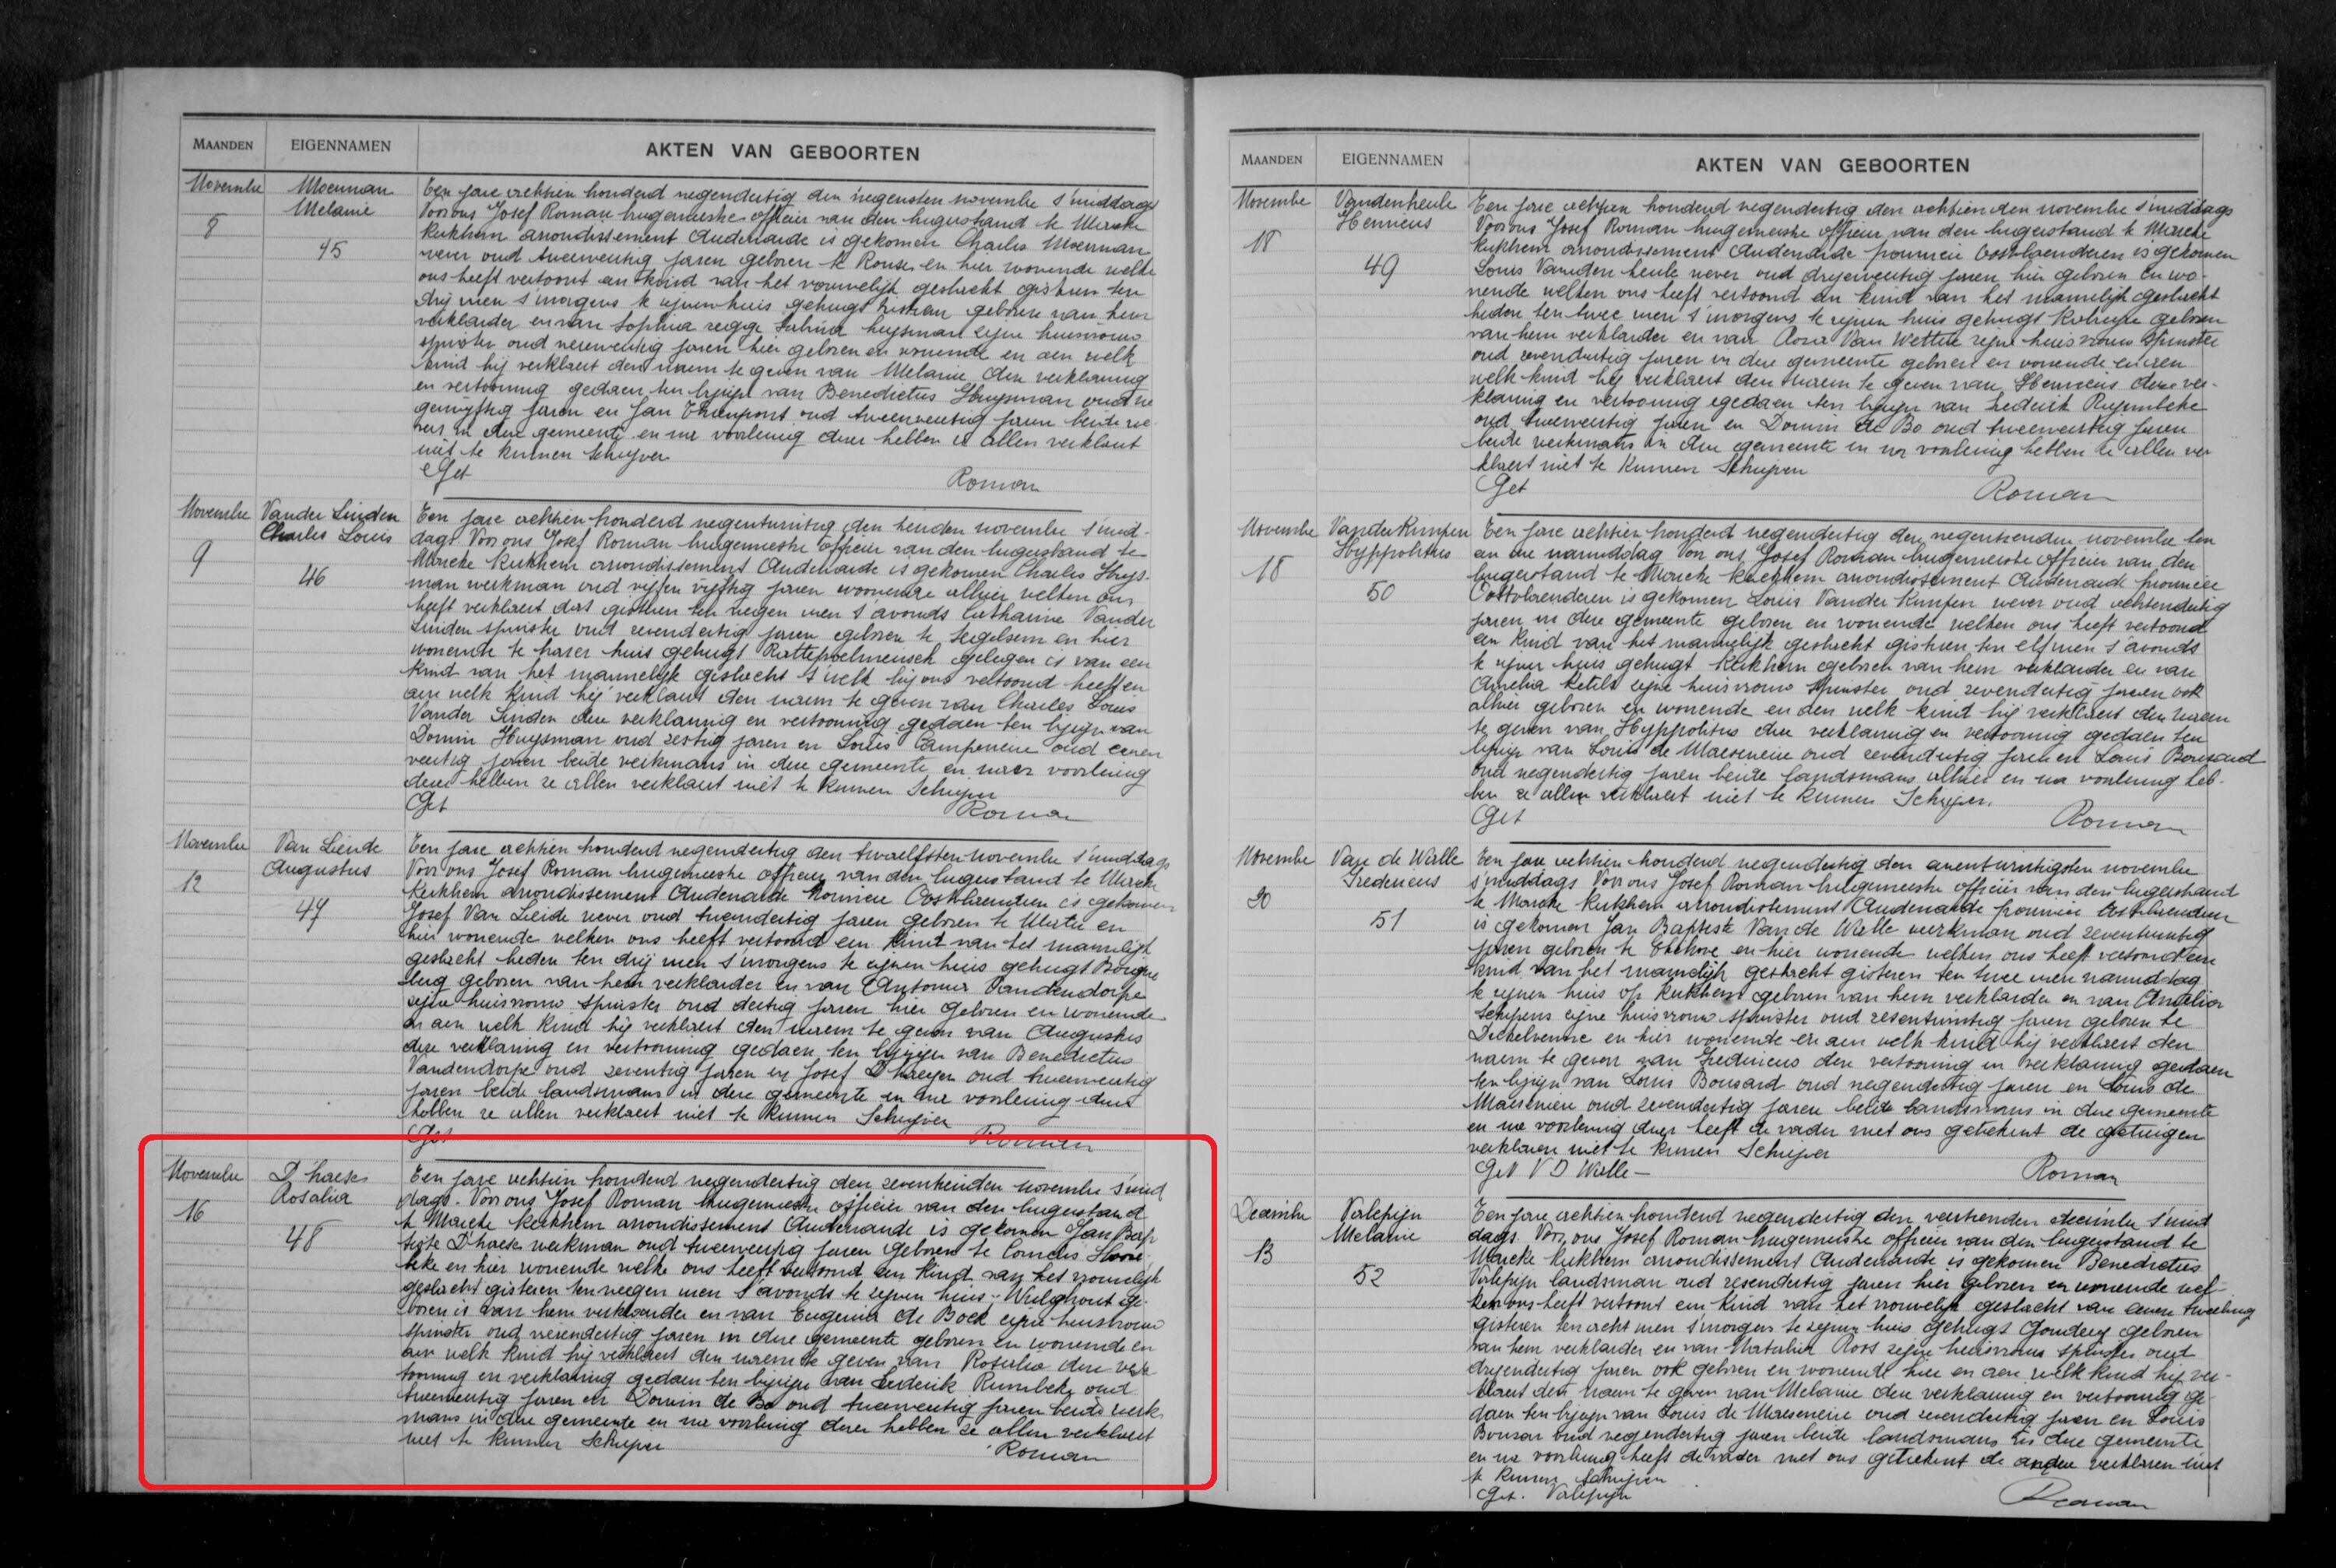 MAANDEN EIGENNAMEN AKTEN VAN GEBOORTEN
Novembre
8
Moerman
Melanie
45
Een jare achtien honderd negendertig den negensten novembre s'middags
Voor ons Josef Roman burgemeester officier van den burgerstand te Maercke
Kerkhem arrondissement Audenaarde is gekomen Charles Moerman
wever oud tweeveertig jaren geboren te Ronse en hier wonende welke
ons heeft vertoont een kind van het vrouwelijk geslacht gisteren ten
drij uren s'morgens te zijnen huis gehugt geboren van hem
verklaerder en van Sophia Huysman zijne huisvrouw
spinster oud jaren hier geboren en wonende en aen welk
kind hij verklaert den naem te geven van Melanie den verklaring
en vertooning gedaen ten bijzijn van Benedictus Huysman oud ne
genvijftig jaren en Jan oud tweenveertig jaren beide we
vers in dese gemeente en na voorlezing deser hebben ze allen verklaert
niet te kunnen schrijven
Get Roman
Novembre
9
Vander Linden
Charles Louis
46
Een jare achtien honderd den tienden novembre s'mid-
dags Voor ons Josef Roman burgemeestre officier van den burgerstand te
Maercke Kerkhem arrondissement Audenaarde is gekomen Charles Huys-
man werkman oud vijf en vijftig jaren woonende alhier welken ons
heeft verklaert dat gisteren ten negen uren s'avonds Catharina Vander
Linden spinster oud zevendertig jaren geboren te Segelsem en hier
wonende te haren huis gehugt gelegen is van een
kind van het mannelijk geslacht t'welk hij ons vertoond heeft en
aen welk kind hij verklaert den naem te geven van Charles Louis
Vander Linden dese verklaring en vertooning gedaen ten bijzijn van
Domin Huysman oud zestig jaren en Louis oud eenen
veertig jaren beide werkmans in dese gemeente en naer voorlezing
dese hebben ze allen verklaert niet te kunnen schrijven
Get Roman
Novembre
12
Van Liende
Augustus
47
Een jare achtien honderd negendertig den twaelfsten novembre s'middags
Voor ons Josef Roman burgemeestre officier van den burgerstand te Maercke
Kerkhem arrondissement Audenaarde Provincie Oostvlaenderen is gekomen
Josef Van Liende wever oud tweendertig jaren geboren te en
hier wonende welken ons heeft vertoond een kind van het mannelijk
geslacht heden ten drij uren s'morgens te zijnen huis gehugt
berg geboren van hem verklaerder en van Antonia Vandendorpe
zijne huisvrouw spinster oud dertig jaren hier geboren en wonende
en aen welk kind hij verklaert den naem te geven van Augustus
dese verklaring en vertooning gedaen ten bijzijn van Benedictus
Vandendorpe oud zeventig jaren en Josef D'haeyer oud tweenveertig
jaren beide landsmans in dese gemeente en na voorlezing deser
hebben ze allen verklaert niet te kunnen schrijven
Get Roman
Novembre
16
D'haese
Rosalia
48
Een jare achtien honderd negendertig den zeventienden novembre s'mid
dags. Voor ons Josef Roman burgemeestre officier van den burgerstand
te Maercke Kerkhem arrondissement Audenaarde is gekomen Jan Bap
tiste D'haese werkman oud tweenveertig jaren geboren te Cornelis Hoore
beke en hier wonende welke ons heeft vertoond een kind van het vrouwelijk
geslacht gisteren ten negen uren s'avonds te zijnen huis ge-
boren is van hem verklaerder en van Eugenia de Bock zijne huisvrouw
spinster oud jaren in dese gemeente geboren en wonende en
aen welk kind hij verklaert den naem te geven van Rosalia dese ver
tooning en verklaring gedaen ten bijzijn van Frederik Rumbeke oud
tweenveertig jaren en Domin de Bo oud tweenveertig jaren beide werk
mans in dese gemeente en na voorlezing deser hebben ze allen verklaert
niet te kunnen schrijven
Roman
MAANDEN EIGENNAMEN AKTEN VAN GEBOORTEN
Novembre
18
Vandenheule
Henricus
49
Een jare achtien honderd negendertig den achtienden novembre s'middags
Voor ons Josef Roman burgemeestre officier van den burgerstand te Maercke
Kerkhem arrondissement Audenaarde provincie Oostvlaenderen is gekomen
Louis Vanden heule wever oud drijenveertig jaren hier geboren en wo-
nende welken ons heeft vertoond een kind van het mannelijk geslacht
heden ten twee uren s'morgens te zijnen huis gehugt geboren
van hem verklaerder en van Rosa Van Wetter zijne huisvrouw spinster
oud zevendertig jaren in dese gemeente geboren en wonende en aen
welk kind hij verklaert den naem te geven van Henricus dese ver-
klaring en vertooning gedaen ten bijzijn van Frederik Rumbeke
oud tweenveertig jaren en Domin de Bo oud tweenveertig jaren
beide werkmans in dese gemeente en na voorlezing hebben ze allen ver
klaert niet te kunnen schrijven
Get Roman
Novembre
18
Vander Kimpen
Hyppolitus
50
Een jare achtien honderd negendertig den negentienden novembre ten
een ure namiddag Voor ons Josef Roman burgemeestre officier van den
burgerstand te Maercke Kerkhem arrondissement Audenaarde provincie
Oostvlaenderen is gekomen Louis Vander Kimpen wever oud achtendertig
jaren in dese gemeente geboren en wonende welken ons heeft vertoond
een kind van het mannelijk geslacht gisteren ten elf uren s'avonds
te zijnen huis gehugt Kerkhem geboren van hem verklaerder en van
Amelia Ketels zijne huisvrouw spinster oud zevendertig jaren ook
alhier geboren en wonende en aen welk kind hij verklaert den naem
te geven van Hyppolitus dese verklaring en vertooning gedaen ten
bijzijn van Louis de Maeseneire oud zevendertig jaren en Louis Bousard
oud negendertig jaren beide landsmans alhier en na voorlezing heb-
ben ze allen verklaert niet te kunnen schrijven.
Get Roman
Novembre
20
Van de Walle
Fredericus
51
Een jare achtien honderd negendertig den eenentwintigsten novembre
s'middags Voor ons Josef Roman burgemeestre officier van den burgerstand
te Maercke Kerkhem arrondissement Audenaarde provincie Oostvlaenderen
is gekomen Jan Baptiste Van de Walle werkman oud zeventwintig
jaren geboren te Etichove en hier wonende welken ons heeft vertoond een
kind van het mannelijk geslacht gisteren ten twee uren namiddag
te zijnen huis op Kerkhem geboren van hem verklaerder en van Amelia
Schepens zijne huisvrouw spinster oud zesentwintig jaren geboren te
Dickelvenne en hier wonende en aen welk kind hij verklaert den
naem te geven van Fredericus dese vertooning en verklaring gedaen
ten bijzijn van Louis Bousard oud negendertig jaren en Louis de
Maeseneire oud zevendertig jaren beide landsmans in dese gemeente
en na voorlezing deser heeft de vader met ons getekent de getuigen
verklaren niet te kunnen schrijven
Get V D Walle- Roman
Decembre
13
Valepijn
Melanie
52
Een jare achtien honderd negendertig den veertienden decembre s'mid
dags. Voor ons Josef Roman burgemeestre officier van den burgerstand te
Maercke Kerkhem arrondissement Audenaarde is gekomen Benedictus
Valepijn landsman oud zesendertig jaren hier geboren en wonende wel-
ken ons heeft vertoont een kind van het vrouwelijk geslacht van eenen tweeling
gisteren ten acht uren s'morgens te zijnen huis gehugt geboren
van hem verklaerder en van Nathalia Roos zijne huisvrouw spinster oud
drijendertig jaren ook geboren en wonende hier en aen welk kind hij ver-
klaert den naem te geven van Melanie dese verklaring en vertooning ge-
daen ten bijzijn van Louis de Maeseneire oud zevendertig jaren en Louis
Bousar oud negendertig jaren beide landsmans in dese gemeente
en na voorlezing heeft de vader met ons getekent de andere verklaren niet
te kunnen schrijven
Get. Valepijn Roman